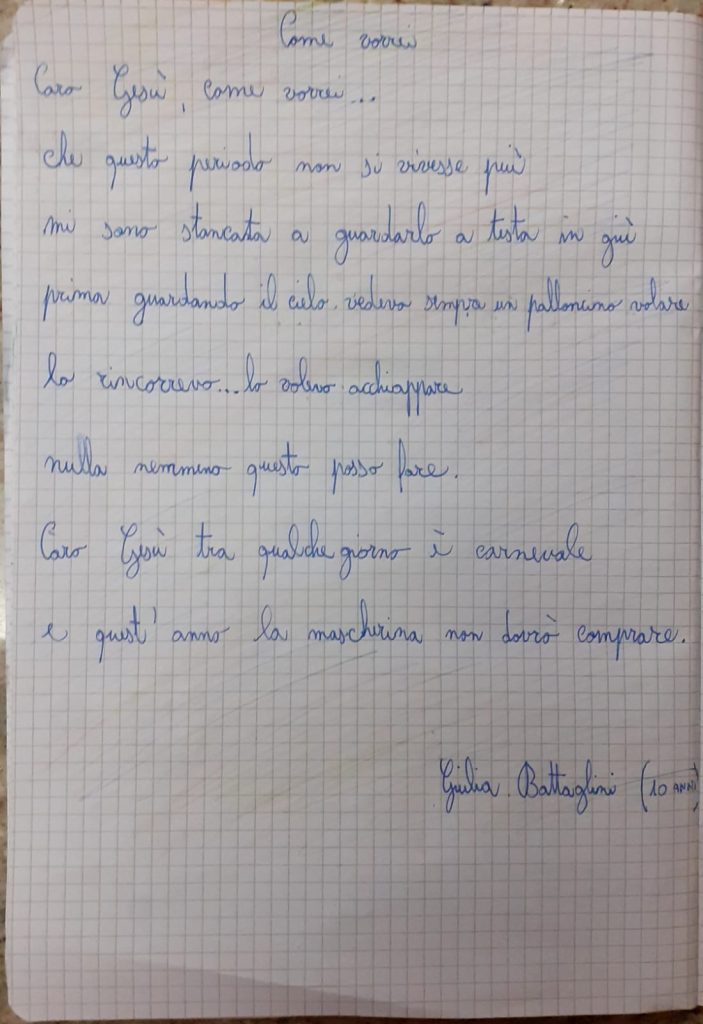 Come vorrei
Caro Gesù, come vorrei...
che questo periodo non si vivesse più
mi sono stancata a guardarlo a testa in giù
prima guardando il cielo vedevo sempre un palloncino volare
lo rincorrevo... lo volevo acchiappare
nulla nemmeno questo posso fare.
Caro Gesù tra qualche giorno è carnevale
e quest'anno la mascherina non dovrò comprare.
Giulia Battaglini (10 ANNI)